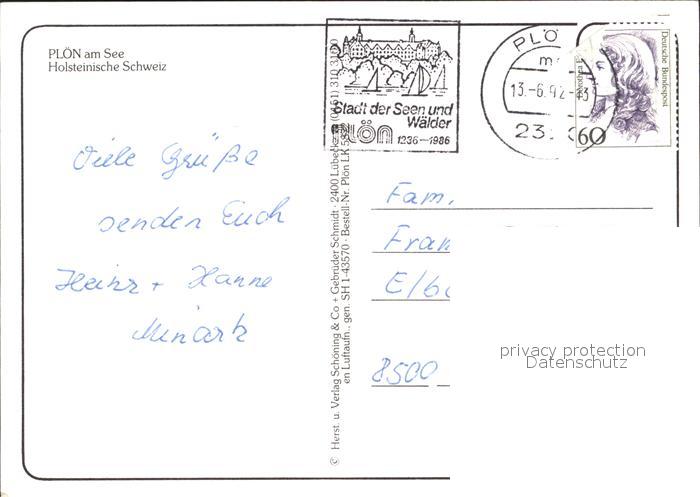 PLÖN am See
Holsteinische Schweiz
Viele Grüße
senden Euch
Heinz + Hanne
Minartz
© Herst. u. Verlag Schöning & Co + Gebrüder Schmidt · 2400 Lübeck
en Luftaufn., gen. SH 1-43570 · Bestell-Nr. Plön LK
Stadt der Seen und
Wälder
PLÖN 1236-1986
PLÖ
13.-6.92
23
Deutsche Bundespost
60
Fam.
Fran
E/b
8500
privacy protection
Datenschutz